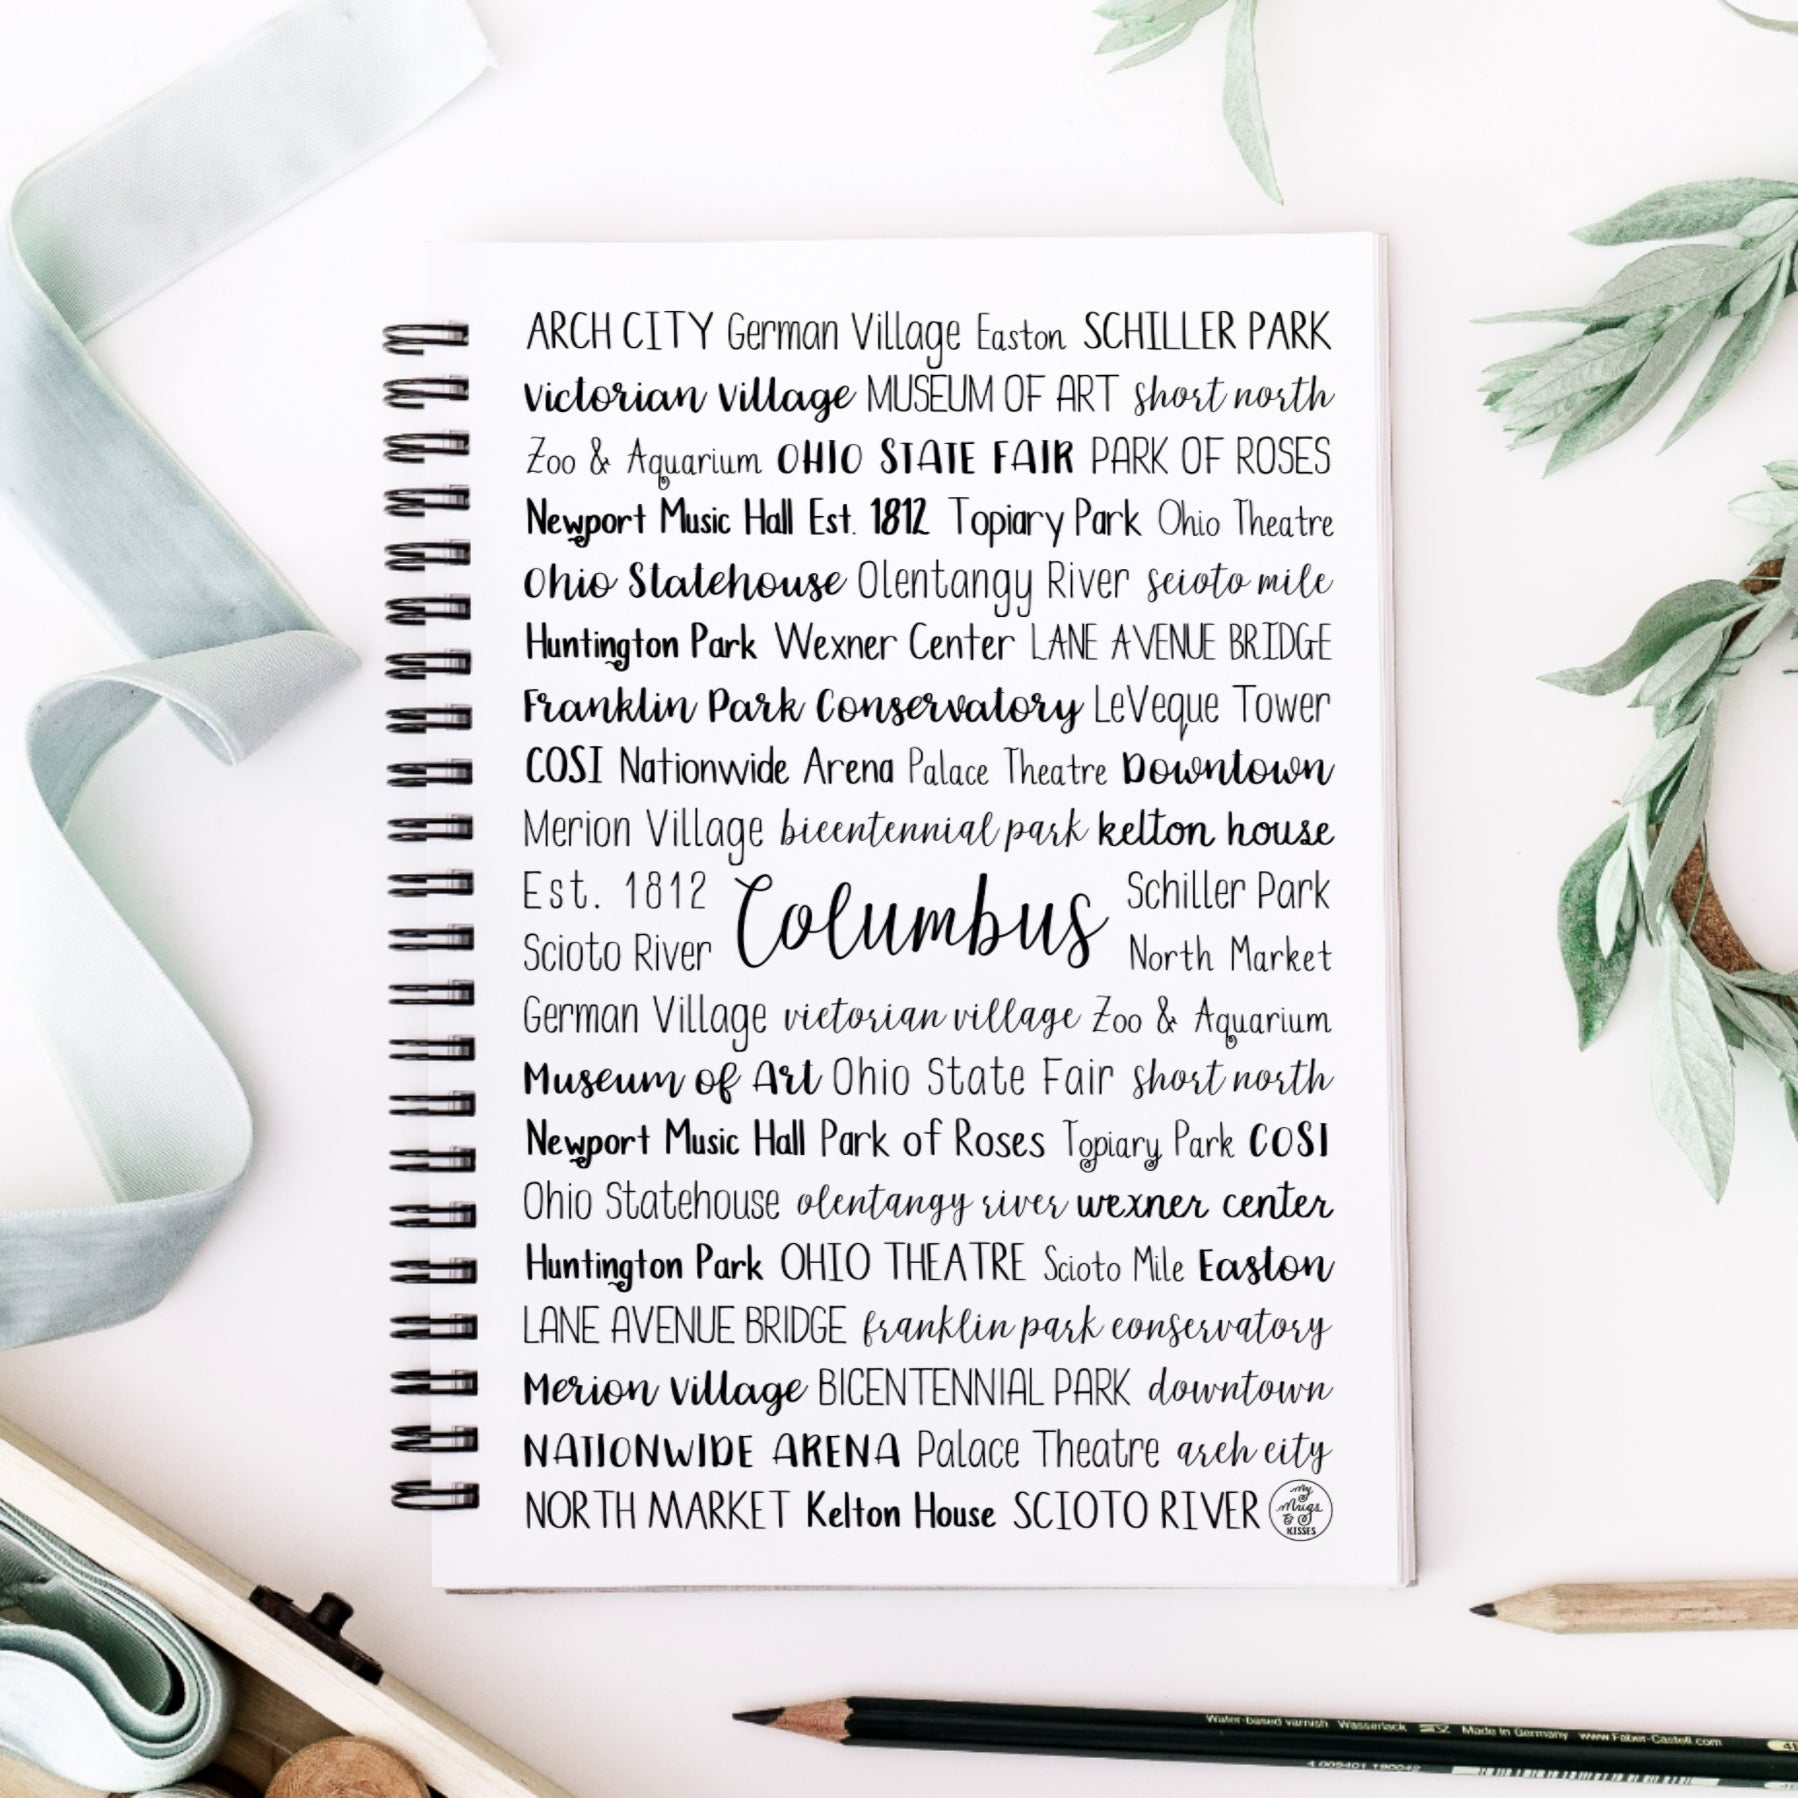 ARCH CITY German Village Easton SCHILLER PARK
Victorian Village MUSEUM OF ART short north
Zoo & Aquarium OHIO STATE FAIR PARK OF ROSES
Newport Music Hall Est. 1812 Topiary Park Ohio Theatre
Ohio Statehouse Olentangy River scioto mile
Huntington Park Wexner Center LANE AVENUE BRIDGE
Franklin Park Conservatory LeVeque Tower
COSI Nationwide Arena Palace Theatre Downtown
Merion Village bicentennial park kelton house
Est. 1812 Columbus Schiller Park
Scioto River North Market
German Village victorian village Zoo & Aquarium
Museum of Art Ohio State Fair short north
Newport Music Hall Park of Roses Topiary Park COSI
Ohio Statehouse olentangy river wexner center
Huntington Park OHIO THEATRE Scioto Mile Easton
LANE AVENUE BRIDGE franklin park conservatory
Merion Village BICENTENNIAL PARK downtown
NATIONWIDE ARENA Palace Theatre arch city
NORTH MARKET Kelton House SCIOTO RIVER
My
Mugs
&
KISSES
Water-based varnish Wasserlack Made in Germany www.Faber-Castell.com
4 005401 190042